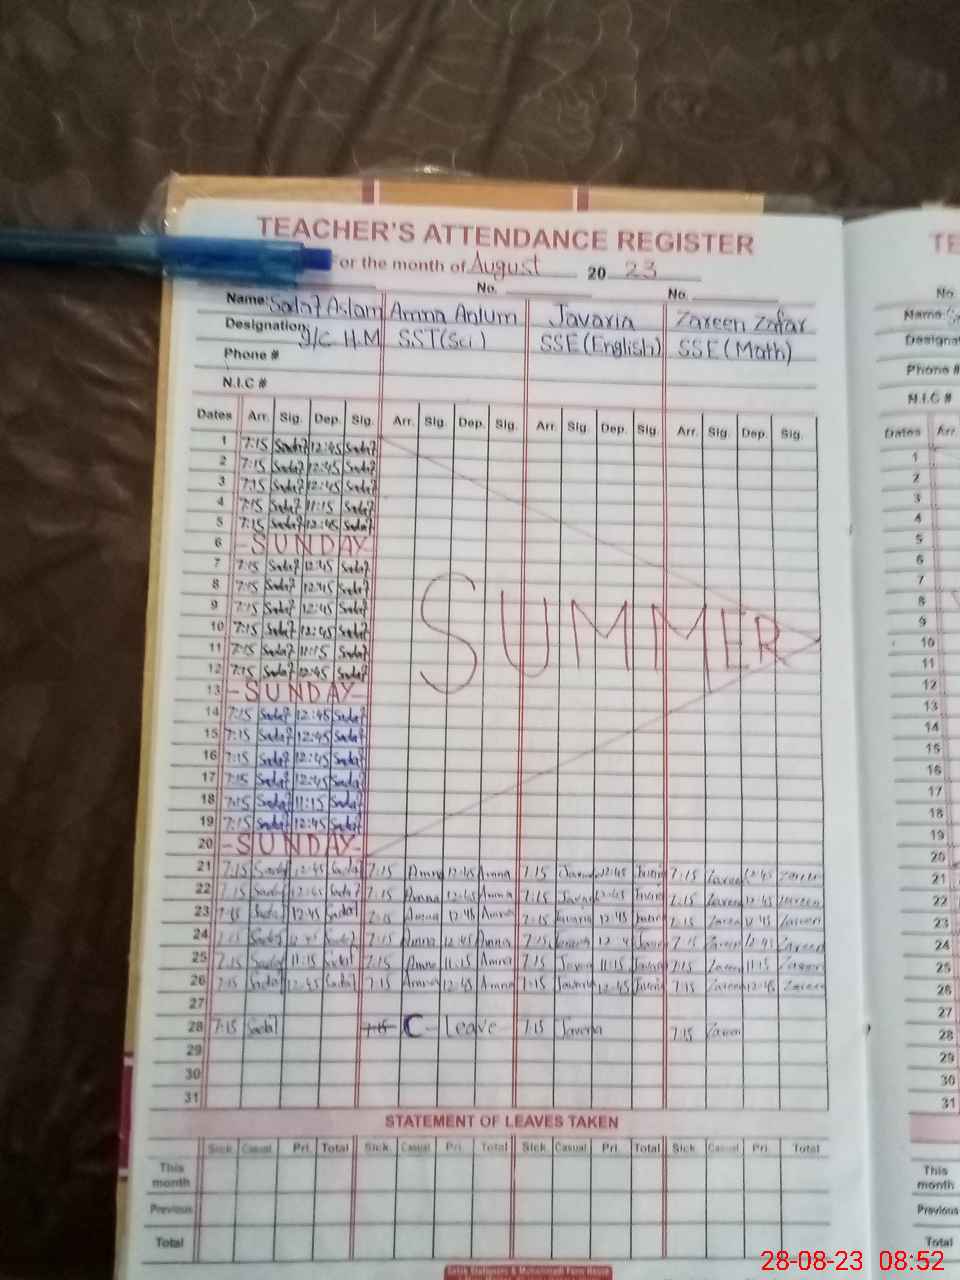 TEACHER'S ATTENDANCE REGISTER
For the month of August 20 23
No. No.
Name: Sadaf Aslam Amna Anjum Javaria Zareen Zafar
Designation: I/C H.M SST(Sci) SSE(English) SSE(Math)
Phone #
N.I.C #
Dates Arr. Sig. Dep. Sig. Arr. Sig. Dep. Sig. Arr. Sig. Dep. Sig. Arr. Sig. Dep. Sig.
1 7:15 Sadaf 12:45 Sadaf
2 7:15 Sadaf 12:45 Sadaf
3 7:15 Sadaf 12:45 Sadaf
4 7:15 Sadaf 11:15 Sadaf
5 7:15 Sadaf 12:45 Sadaf
6 -SUNDAY-
7 7:15 Sadaf 12:45 Sadaf
8 7:15 Sadaf 12:45 Sadaf
9 7:15 Sadaf 12:45 Sadaf
SUMMER
10 7:15 Sadaf 12:45 Sadaf
11 7:15 Sadaf 11:15 Sadaf
12 7:15 Sadaf 12:45 Sadaf
13 -SUNDAY-
14 7:15 Sadaf 12:45 Sadaf
15 7:15 Sadaf 12:45 Sadaf
16 7:15 Sadaf 12:45 Sadaf
17 7:15 Sadaf 12:45 Sadaf
18 7:15 Sadaf 11:15 Sadaf
19 7:15 Sadaf 12:45 Sadaf
20 -SUNDAY-
21 7:15 Sadaf 12:45 Sadaf 7:15 Amna 12:45 Amna 7:15 Javaria 12:45 Javaria 7:15 Zareen 12:45 Zareen
22 7:15 Sadaf 12:45 Sadaf 7:15 Amna 12:45 Amna 7:15 Javaria 12:45 Javaria 7:15 Zareen 12:45 Zareen
23 7:15 Sadaf 12:45 Sadaf 7:15 Amna 12:45 Amna 7:15 Javaria 12:45 Javaria 7:15 Zareen 12:45 Zareen
24 7:15 Sadaf 12:45 Sadaf 7:15 Amna 12:45 Amna 7:15 Javaria 12:4 Javaria 7:15 Zareen 12:45 Zareen
25 7:15 Sadaf 11:15 Sadaf 7:15 Amna 11:15 Amna 7:15 Javaria 11:15 Javaria 7:15 Zareen 11:15 Zareen
26 7:15 Sadaf 12:45 Sadaf 7:15 Amna 12:45 Amna 7:15 Javaria 12:45 Javaria 7:15 Zareen 12:45 Zareen
27
28 7:15 Sadaf 7:15 C-Leave 7:15 Javaria 7:15 Zareen
29
30
31
STATEMENT OF LEAVES TAKEN
Sick Casual Pri. Total Sick Casual Pri. Total Sick Casual Pri. Total Sick Casual Pri. Total
This month
Previous
Total
TE
No
Name:
Designa
Phone #
N.I.C #
Dates Arr.
1
2
3
4
5
6
7
8
9
10
11
12
13
14
15
16
17
18
19
20
21
22
23
24
25
26
27
28
29
30
31
This month
Previous
Total
28-08-23 08:52